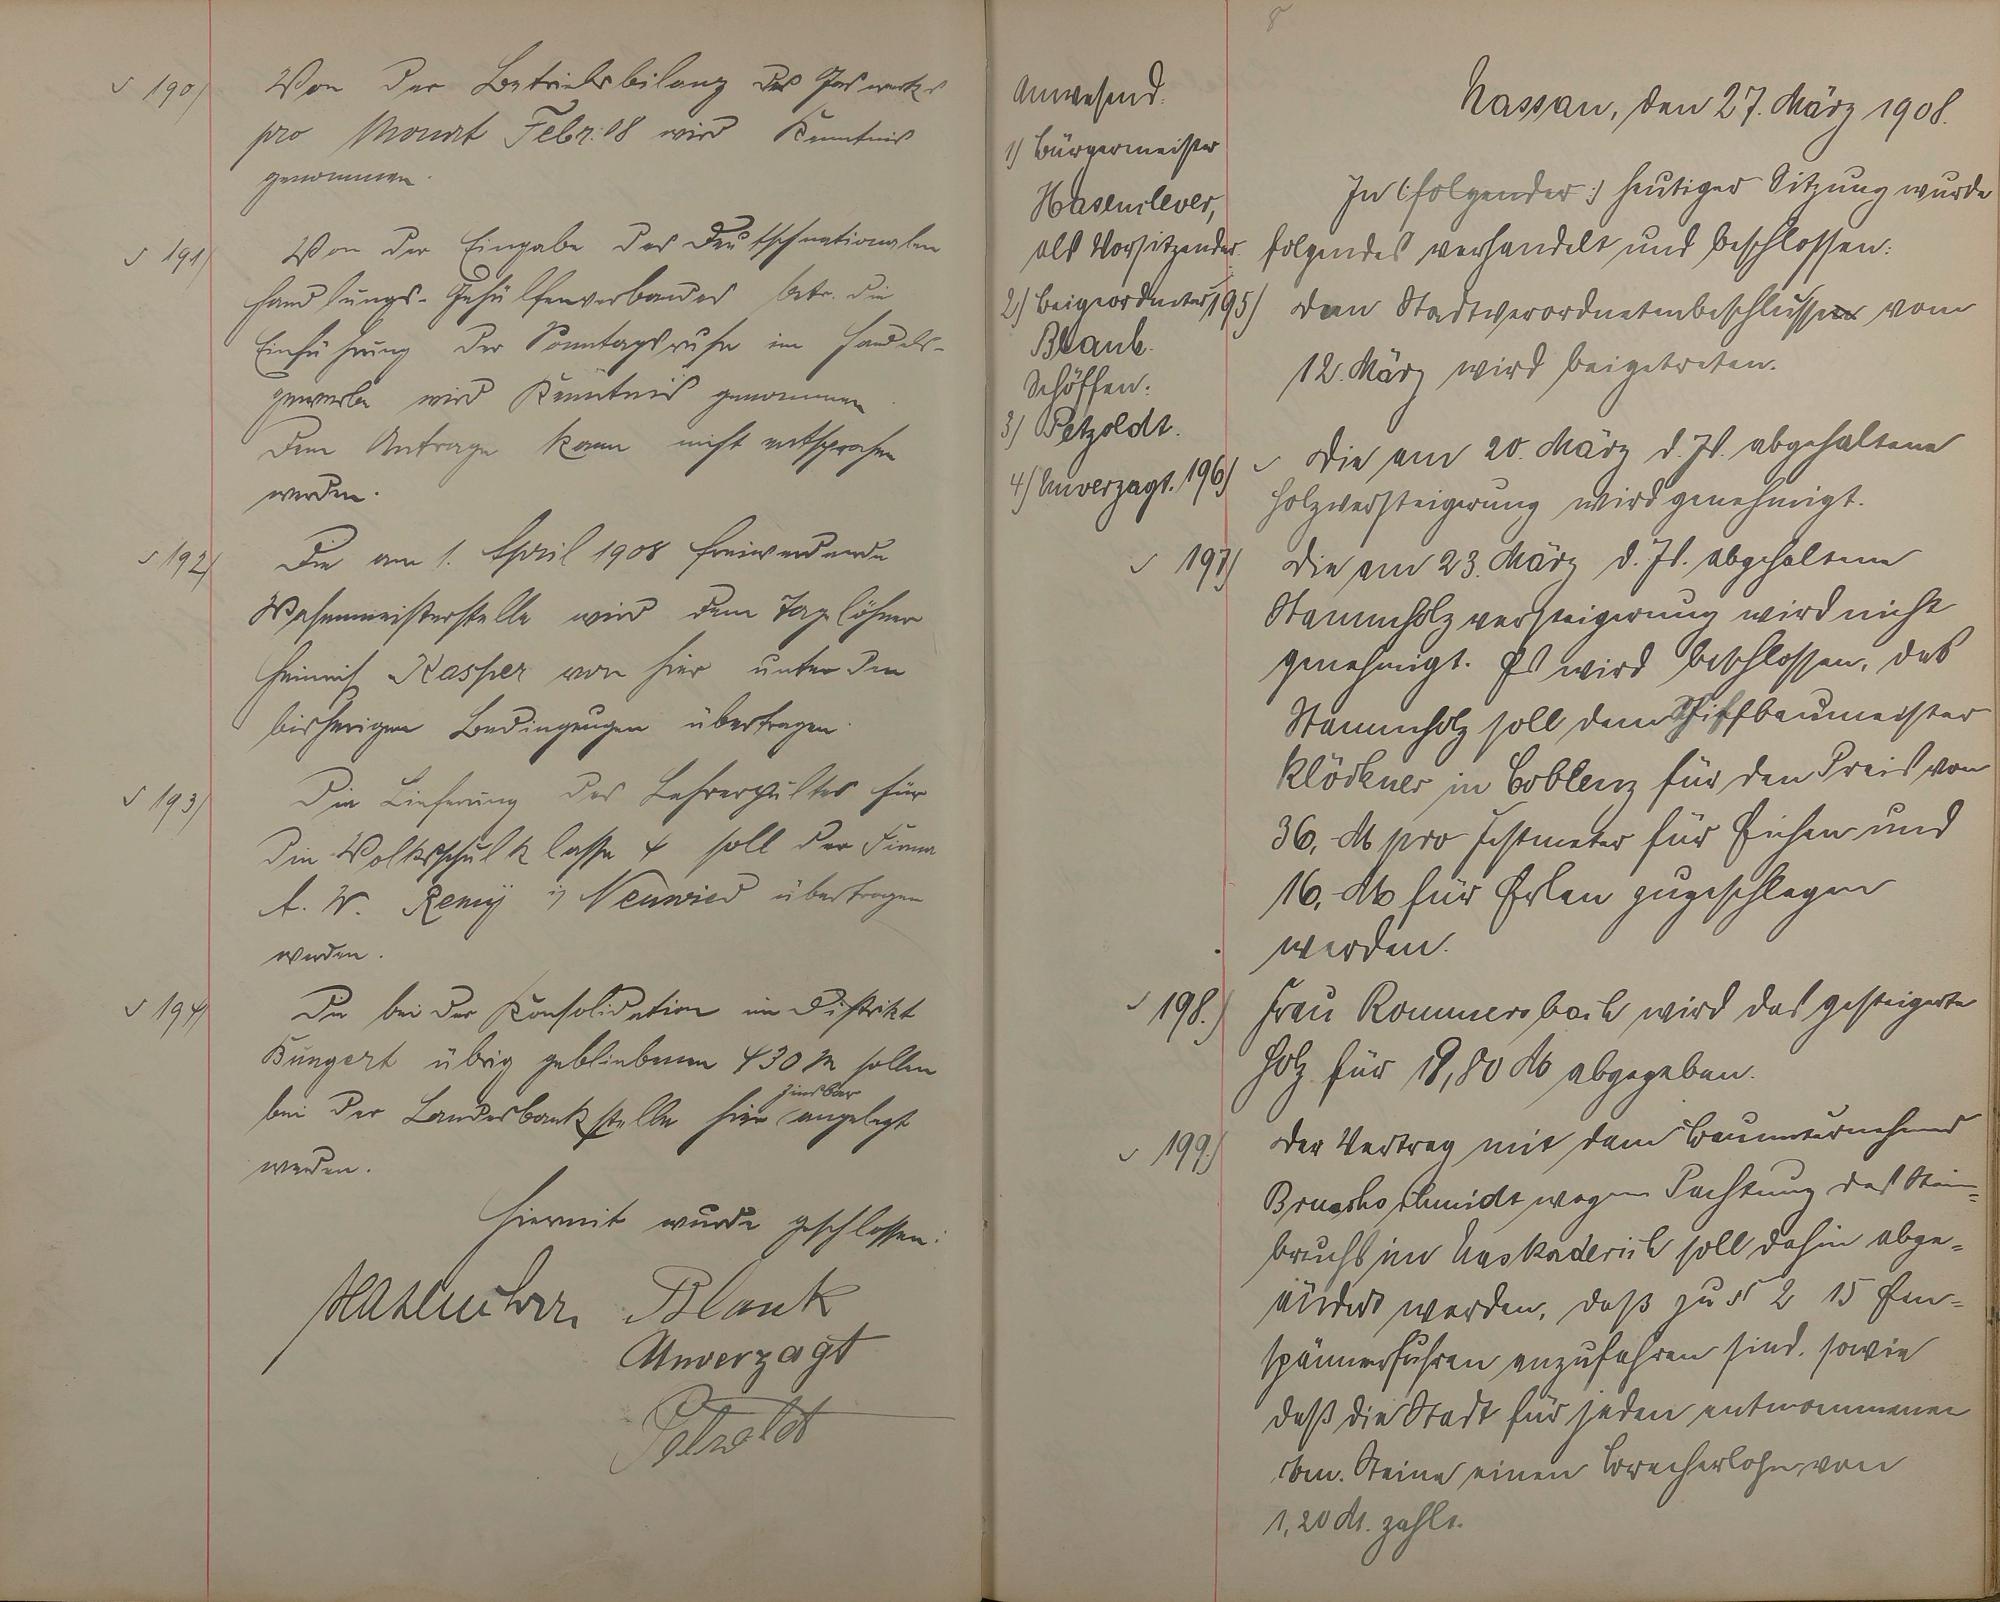 190) Von der Betriebsbilanz des Gaswerks
pro Monat Febr. 08 wird Kenntnis
genommen.
191) Von der Eingabe des Deutschnationalen
Handlungs-Gehülfenverbandes betr. die
Einführung der Sonntagsruhe im Handels-
gewerbe wird Kenntnis genommen.
Dem Antrage kann nicht entsprochen
werden.
192) Die am 1. April 1908 freiwerdende
Wasenmeisterstelle wird dem Taglöhner
Heinrich Kasper von hier unter den
bisherigen Bedingungen übertragen.
193) Die Lieferung des Lehrerpultes für
die Volksschulklasse 4 soll der Firma
A. W. Remy in Neuwied übertragen
werden.
194) Die bei der Konsolidation im Distrikt
Bungert übrig gebliebenen 430 M sollen
bei der Landesbankstelle hier zinsbar angelegt
werden.
Hiermit wurde geschlossen:
Hasenclever. Blank
Unverzagt
Petzoldt
Anwesend:
1) Bürgermeister
Hasenclever,
als Vorsitzender.
2) Beigeordneter
Blank.
Schöffen:
3) Petzoldt.
4) Unverzagt.
Nassau, den 27. März 1908.
In (: folgender :) heutiger Sitzung wurde
folgendes verhandelt und beschlossen:
195) Den Stadtverordnetenbeschlüssen vom
12. März wird beigetreten.
196) Die am 20. März d. Js. abgehaltene
Holzversteigerung wird genehmigt.
197) Die am 23. März d. Js. abgehaltene
Stammholzversteigerung wird nicht
genehmigt. Es wird beschlossen, das
Stammholz soll dem Schiffbaumeister
Klöckner in Coblenz für den Preis von
36,- M pro Festmeter für Eichen und
16,- M für Erlen zugeschlagen
werden.
198.) Frau Rommersbach wird das gesteigerte
Holz für 18,80 M abgegeben.
199.) Der Vertrag mit dem Bauunternehmer
Bruchschmidt wegen Pachtung des Stein-
bruchs im Kaderich soll dahin abge-
ändert werden, daß zu § 2 15 Ein-
spännerfuhren anzufahren sind, sowie
daß die Stadt für jeden entnommenen
cbm. Steine einen Brecherlohn von
1,20 M. zahlt.